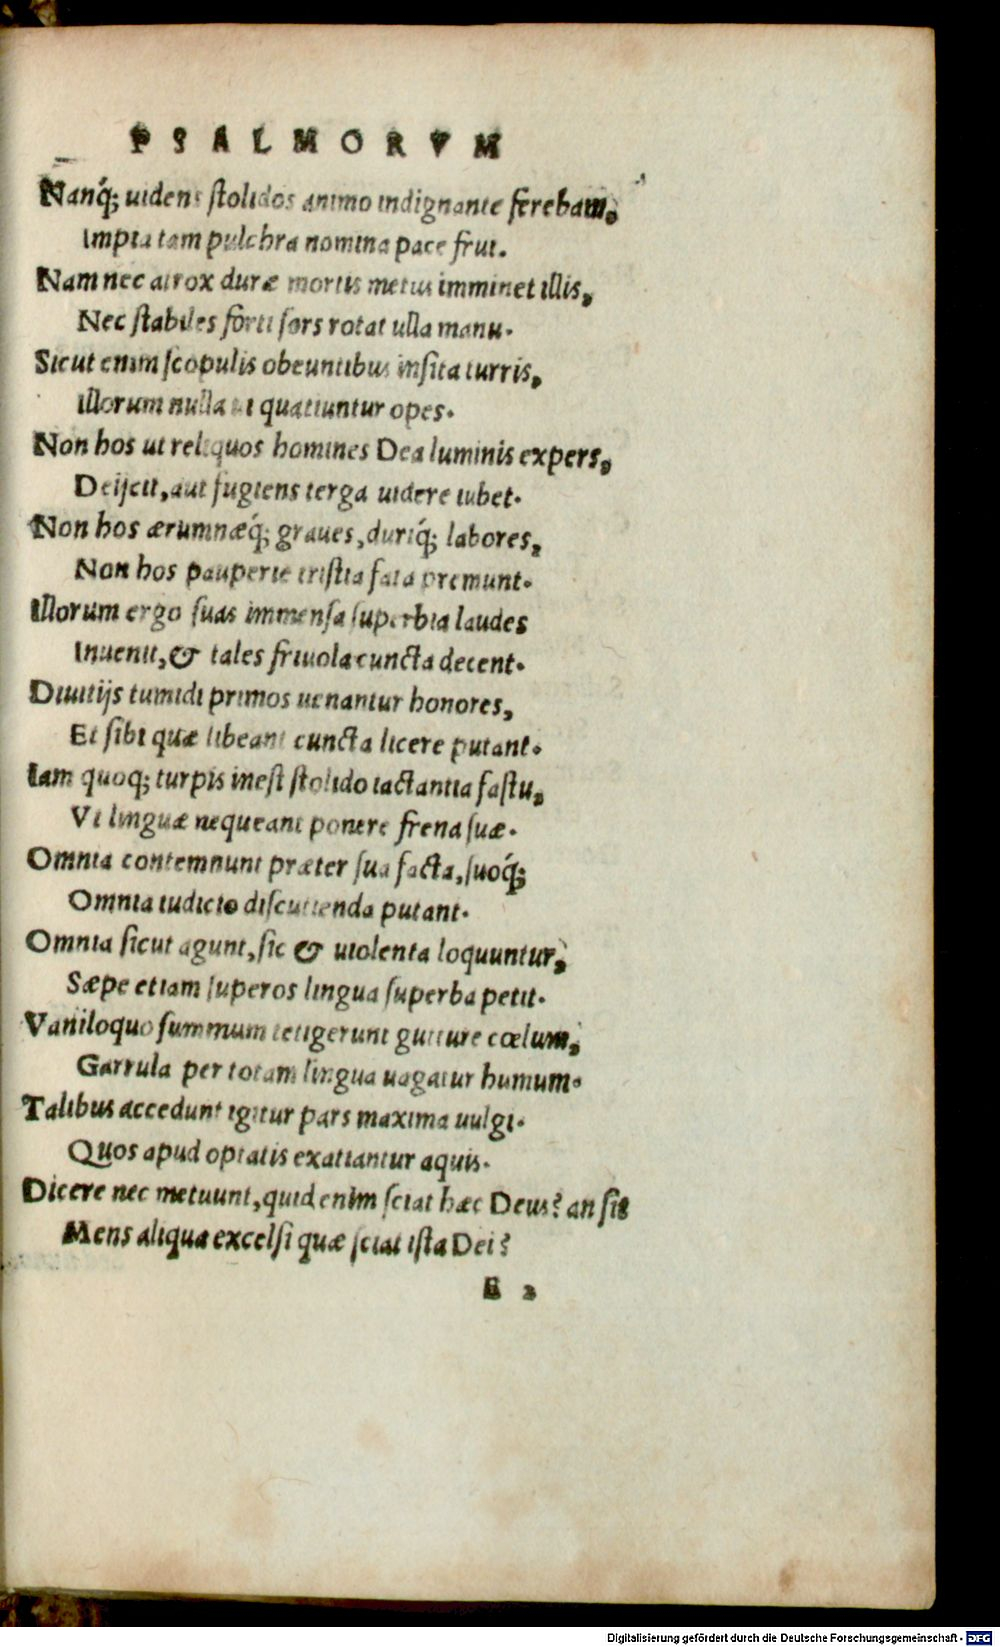 PSALMORVM
Nanq́; uidens stolidos animo indignante ferebam,
Impia tam pulchra nomina pace frui.
Nam nec atrox duræ mortis metus imminet illis,
Nec stabiles forti sors rotat ulla manu.
Sicut enim scopulis obeuntibus insita turris,
Illorum nulla ui quatiuntur opes.
Non hos ut reliquos homines Dea luminis expers,
Deijcit, aut fugiens terga uidere iubet.
Non hos ærumnæq́; graues, duriq́; labores,
Non hos pauperie tristia fata premunt.
Illorum ergo suas immensa superbia laudes
Inuenit, & tales friuola cuncta decent.
Diuitijs tumidi primos uenantur honores,
Et sibi quæ libeant cuncta licere putant.
Iam quoq; turpis inest stolido iactantia fastu,
Vt linguæ nequeant ponere frena suæ.
Omnia contemnunt præter sua facta, suoq́;
Omnia iudicio discutienda putant.
Omnia sicut agunt, sic & uiolenta loquuntur,
Sæpe etiam superos lingua superba petit.
Vaniloquo summum tetigerunt gutture cœlum,
Garrula per totam lingua uagatur humum.
Talibus accedunt igitur pars maxima uulgi.
Quos apud optatis exatiantur aquis.
Dicere nec metuunt, quid enim sciat hæc Deus? an sit
Mens aliqua excelsi quæ sciat ista Dei?
E 2
Digitalisierung gefördert durch die Deutsche Forschungsgemeinschaft - DFG